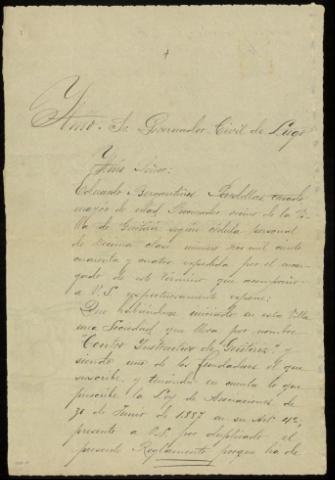 Ilmo. Sr. Governador Civil de Lugo
Ilmo Señor:
Eduardo casado
mayor de edad vecino de la Vi-
lla de Guitiriz segun cédula personal
de decima clase número dos mil ciento
cuarenta y cuatro expedida por el encar-
gado de este término que acompaña
a V.S. respetuosamente expone:
Que habiendose iniciado en esta Villa
una Sociedad que lleva por nombre
"Centro Instructivo de Guitiriz," y
siendo uno de los fundadores el que
suscribe, y teniendo en cuenta lo que
prescribe la Ley de Asociaciones de
30 de Junio de 1887 en su Art. 4º,
presento a V.S. por duplicado el
presente Reglamento porque ha de